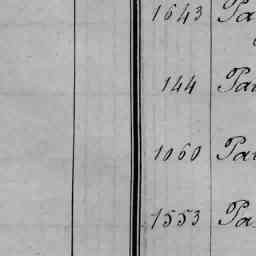 1643 Pa
144 Pau
1060 Pau
1553 Pa